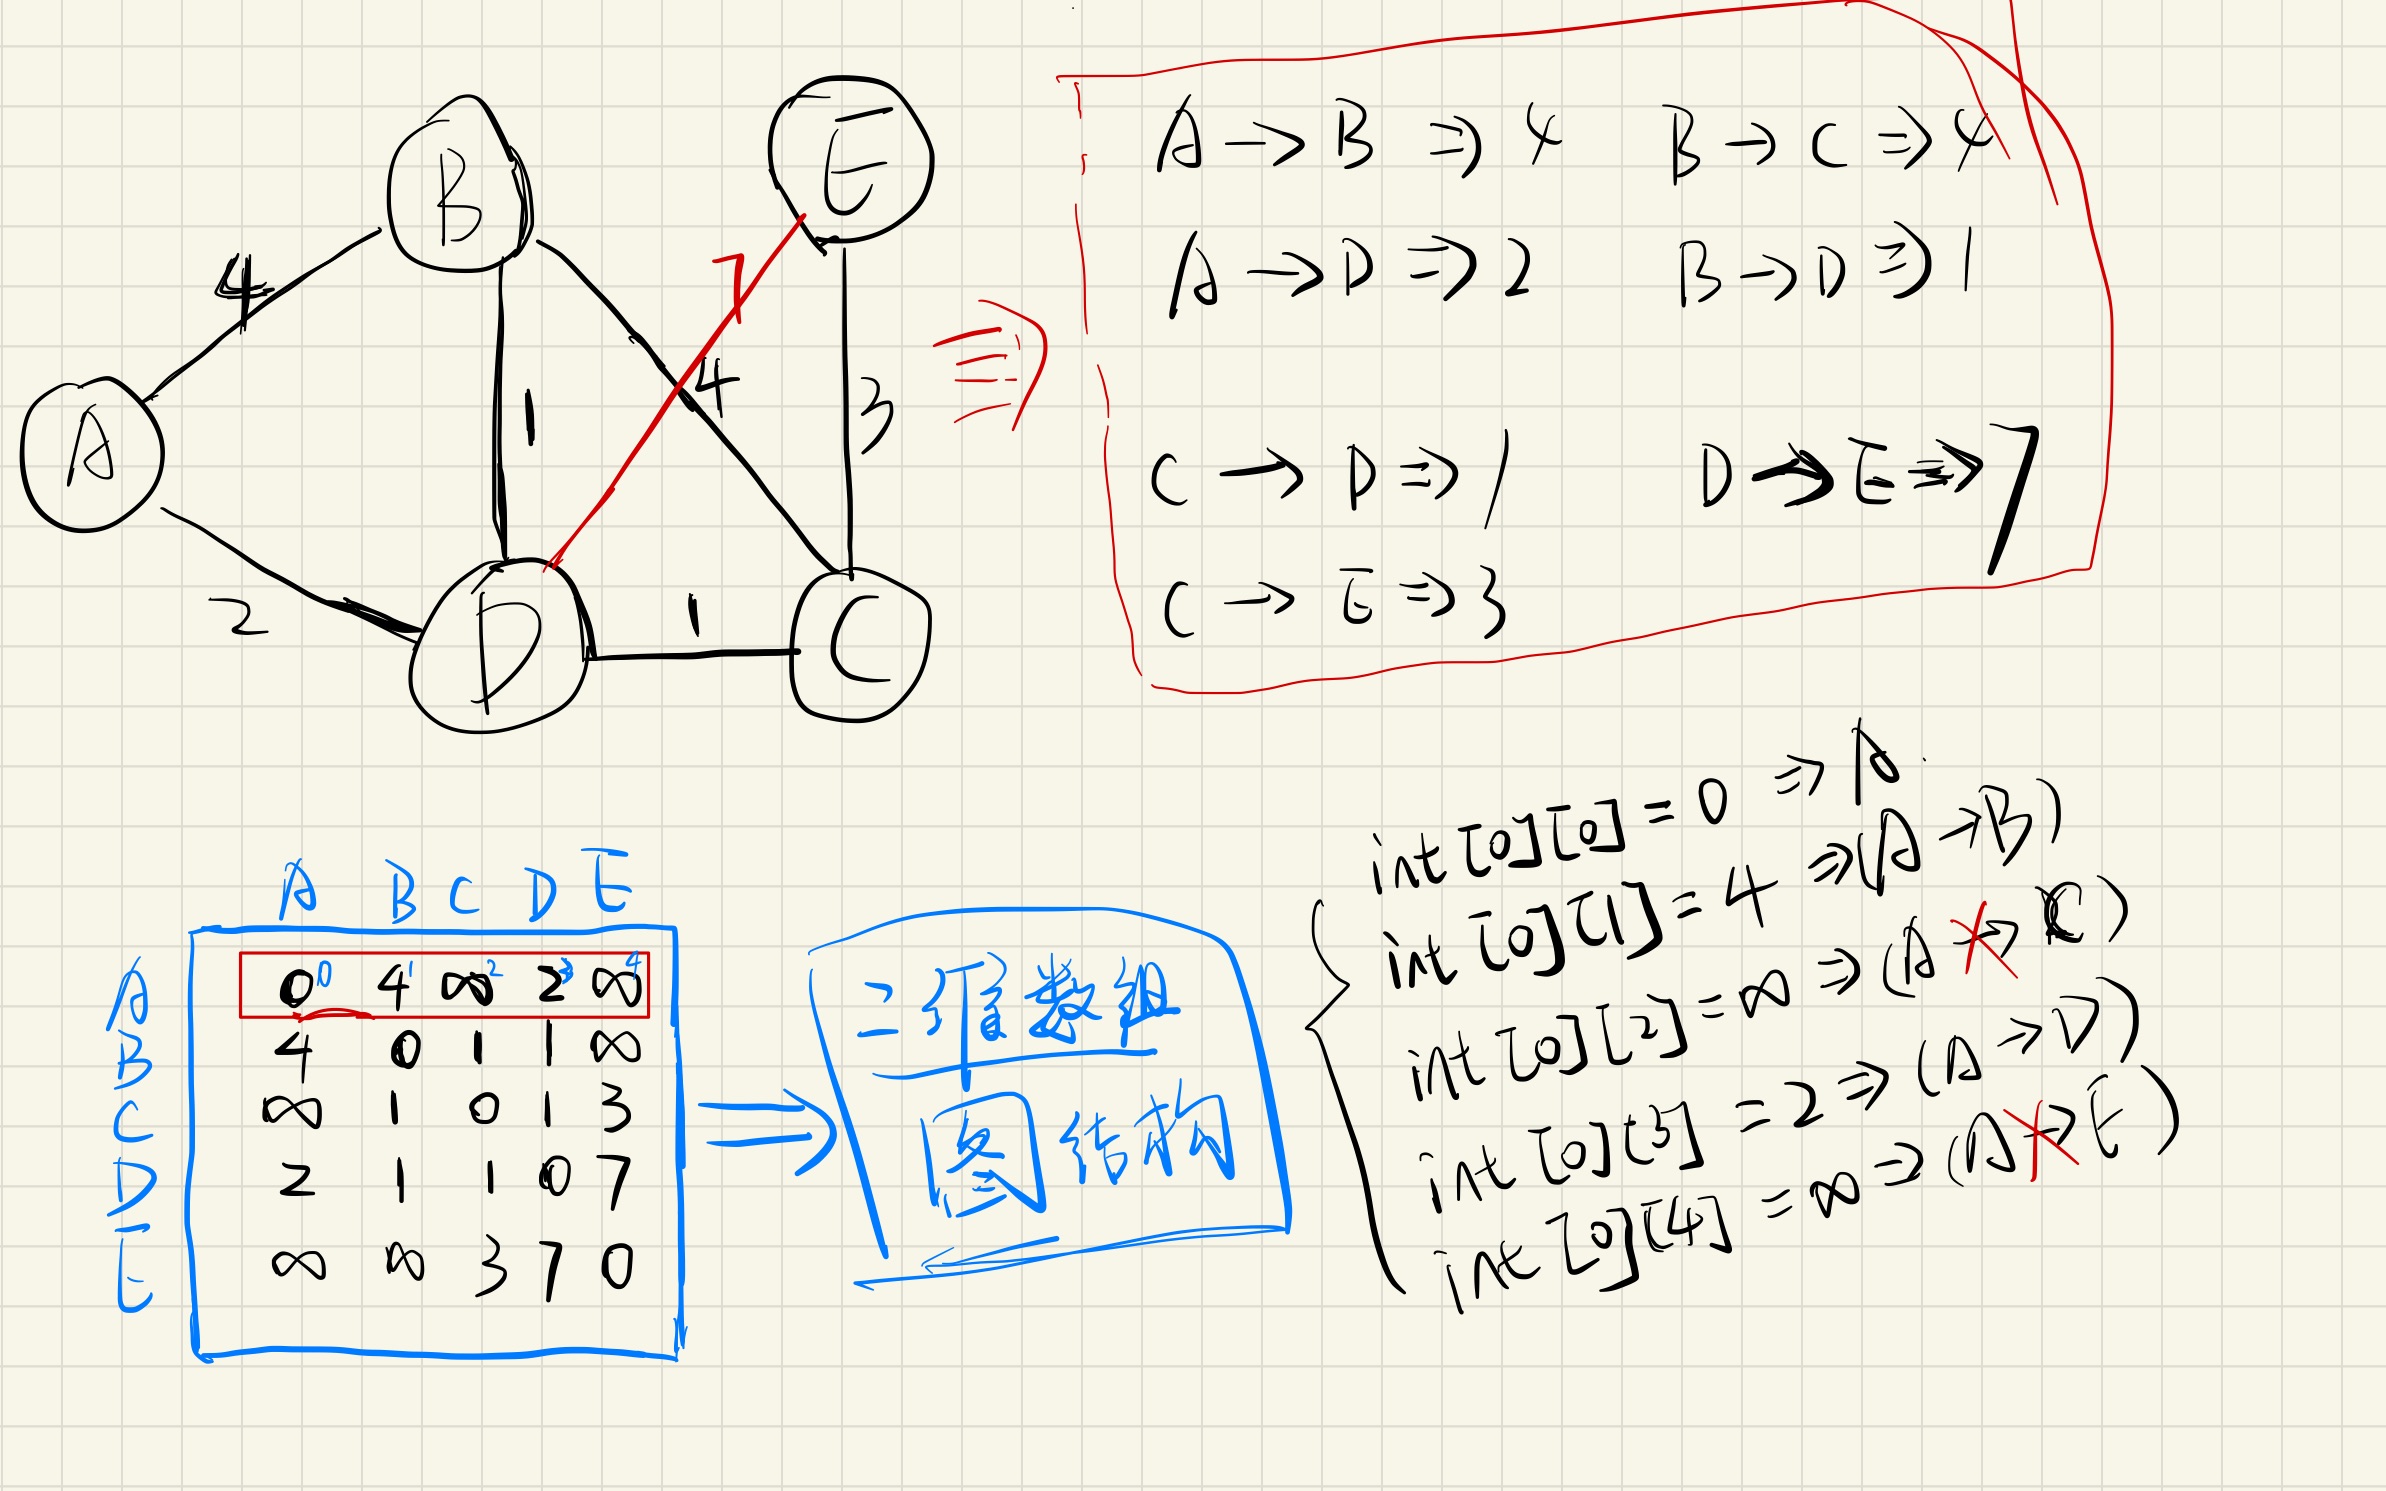 B
E
4
7
4
1
3
A
2
1
D
C
A → B ⇒ 4
B → C ⇒ 4
A → D ⇒ 2
B → D ⇒ 1
C → D ⇒ 1
D → E ⇒ 7
C → E ⇒ 3
A B C D E
A 0 0 4 1 ∞ 2 2 3 ∞ 4
B 4 0 1 1 ∞
C ∞ 1 0 1 3
D 2 1 1 0 7
E ∞ ∞ 3 7 0
⇒
二维数组
图结构
int [0][0] = 0 ⇒ A
int [0][1] = 4 ⇒ (A → B)
int [0][2] = ∞ ⇒ (A → C)
int [0][3] = 2 ⇒ (A → D)
int [0][4] = ∞ ⇒ (A → E)